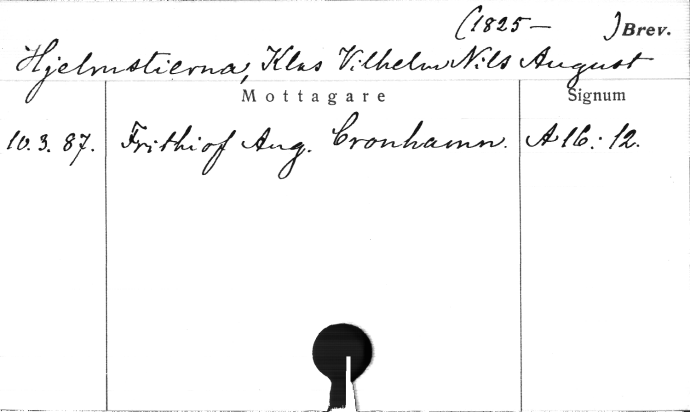 (1825 – ) Brev.
Hjelmstierna, Klas Vilhelm Nils August
Mottagare Signum
10.3.87. Frithiof Aug. Cronhamn. A16:12.